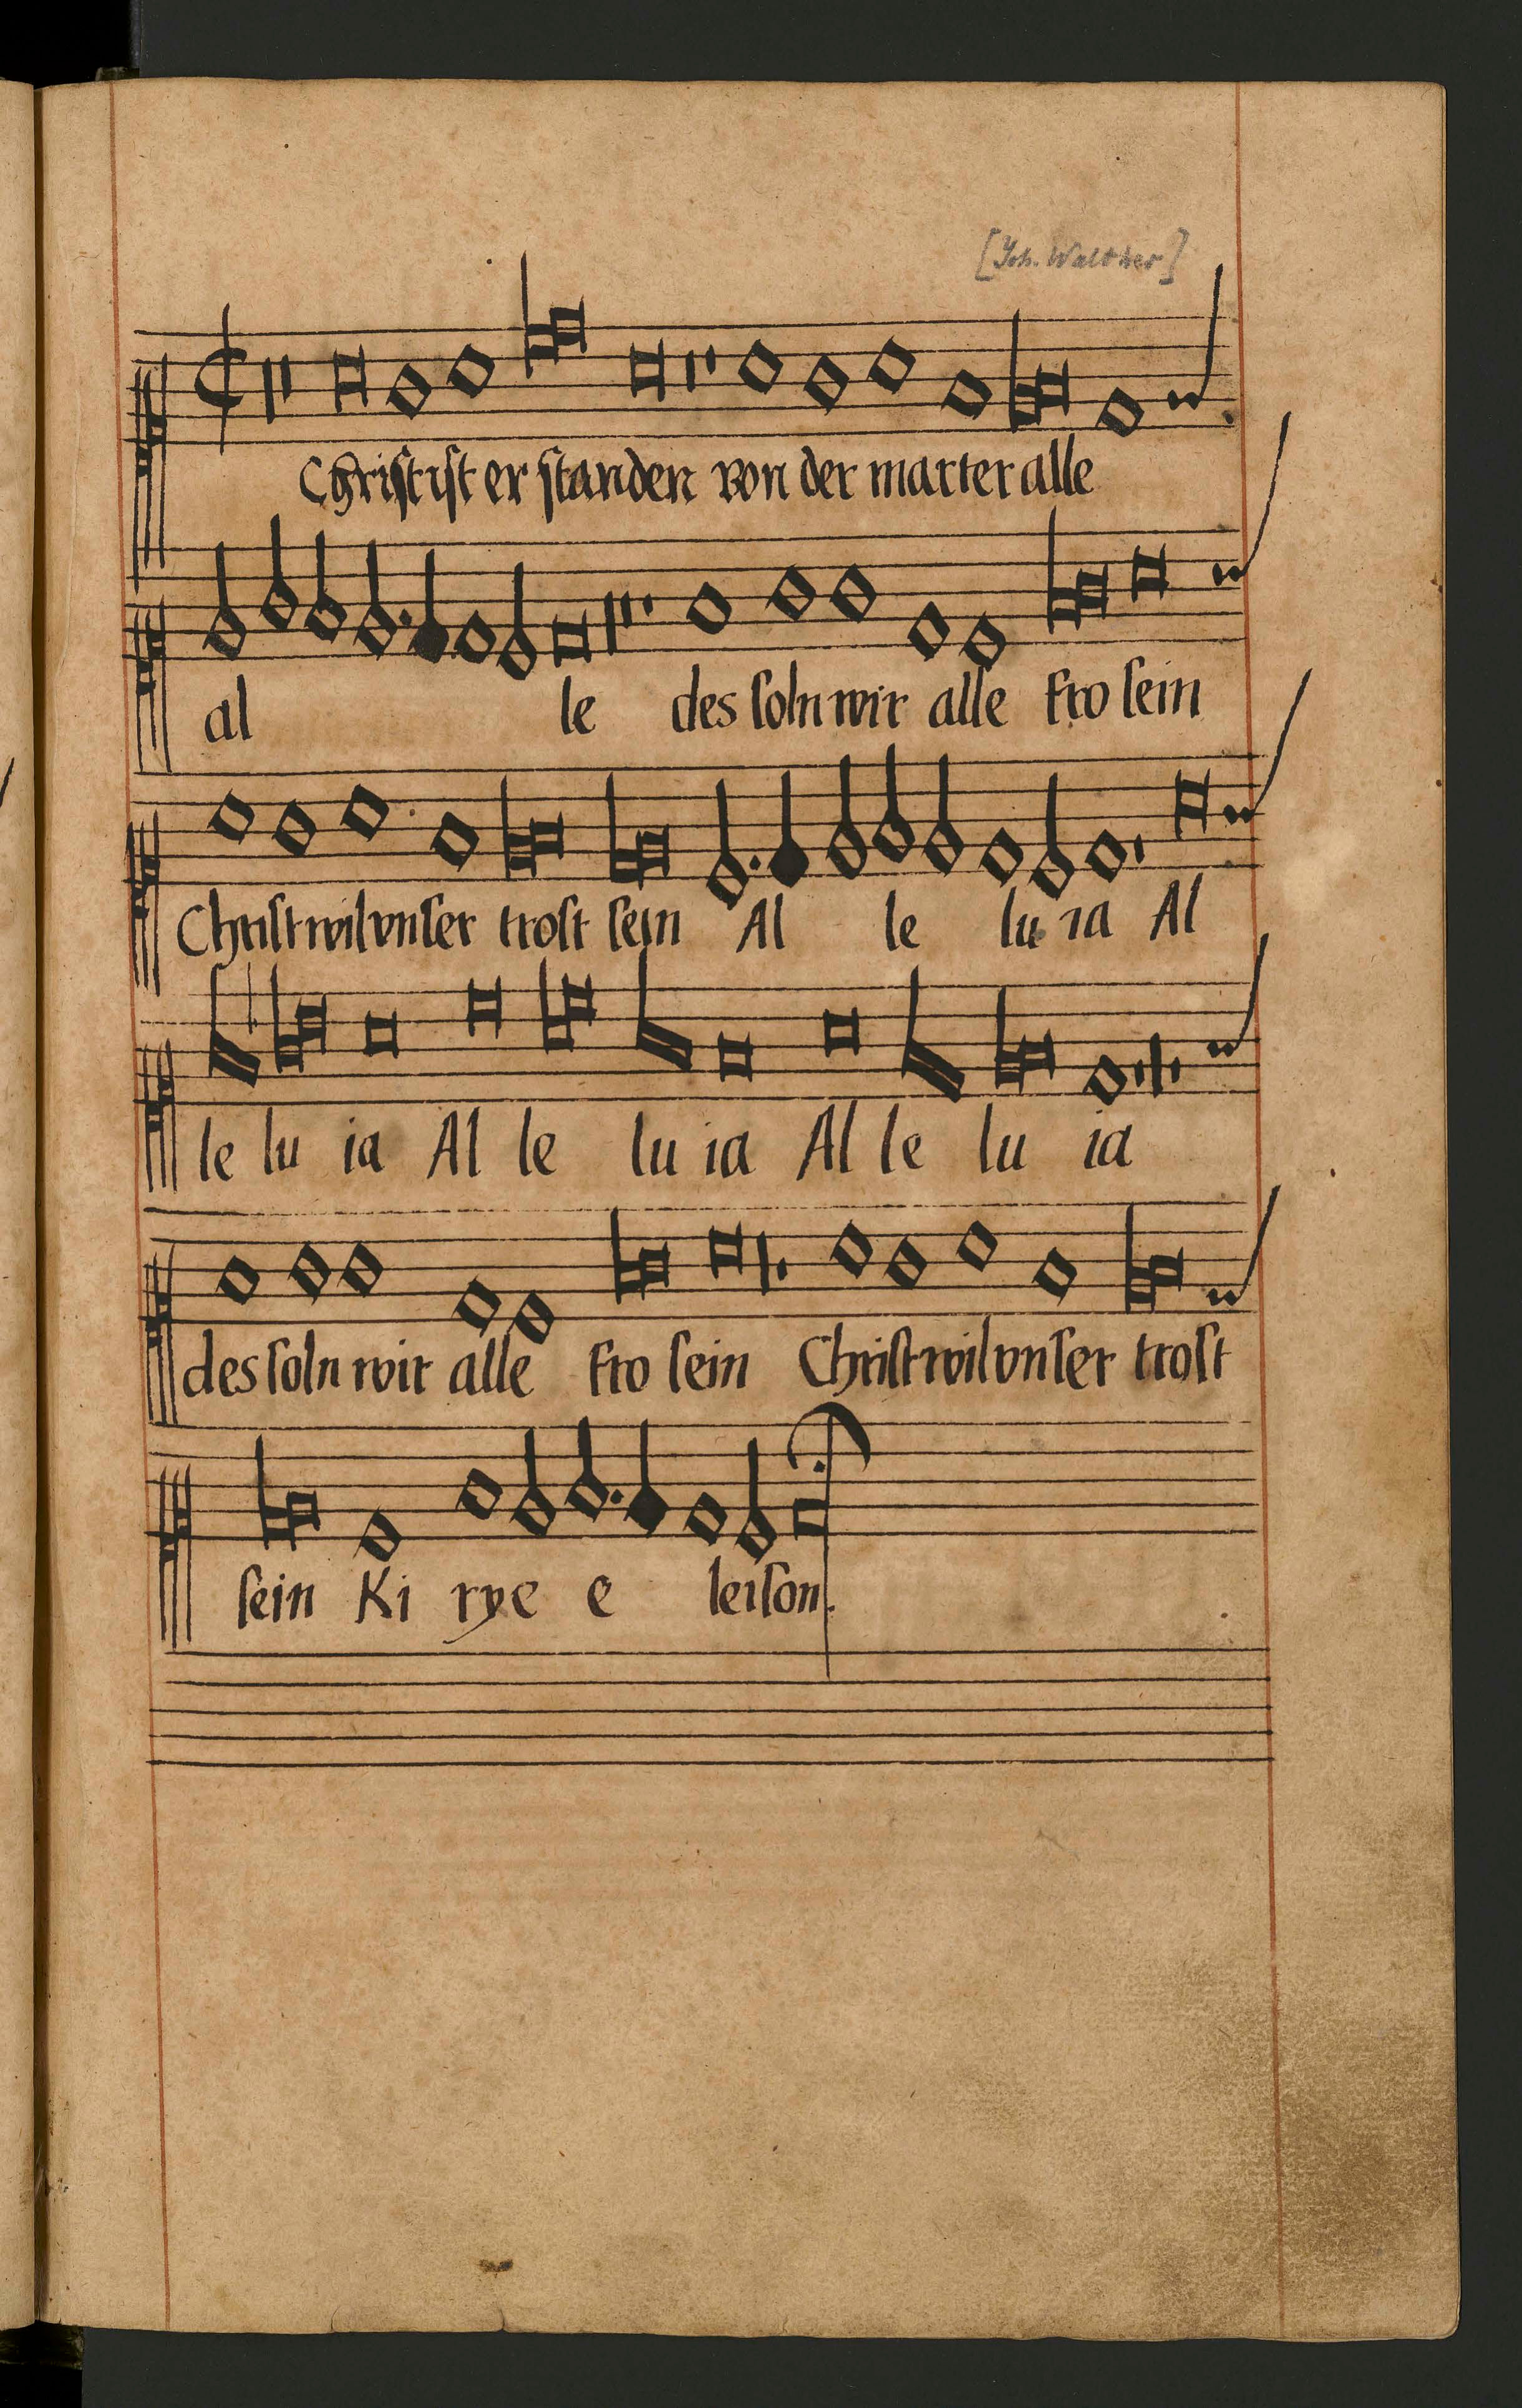 [Joh. Walther]
Christ ist er standen von der marter alle
al le des soln wir alle fro sein
Christ wil vnser trost sein Al le lu ia Al
le lu ia Al le lu ia Al le lu ia
des soln wir alle fro sein Christ wil vnser trost
sein Ki rye e leison.